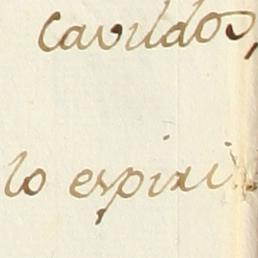 cavildos,
lo espiri